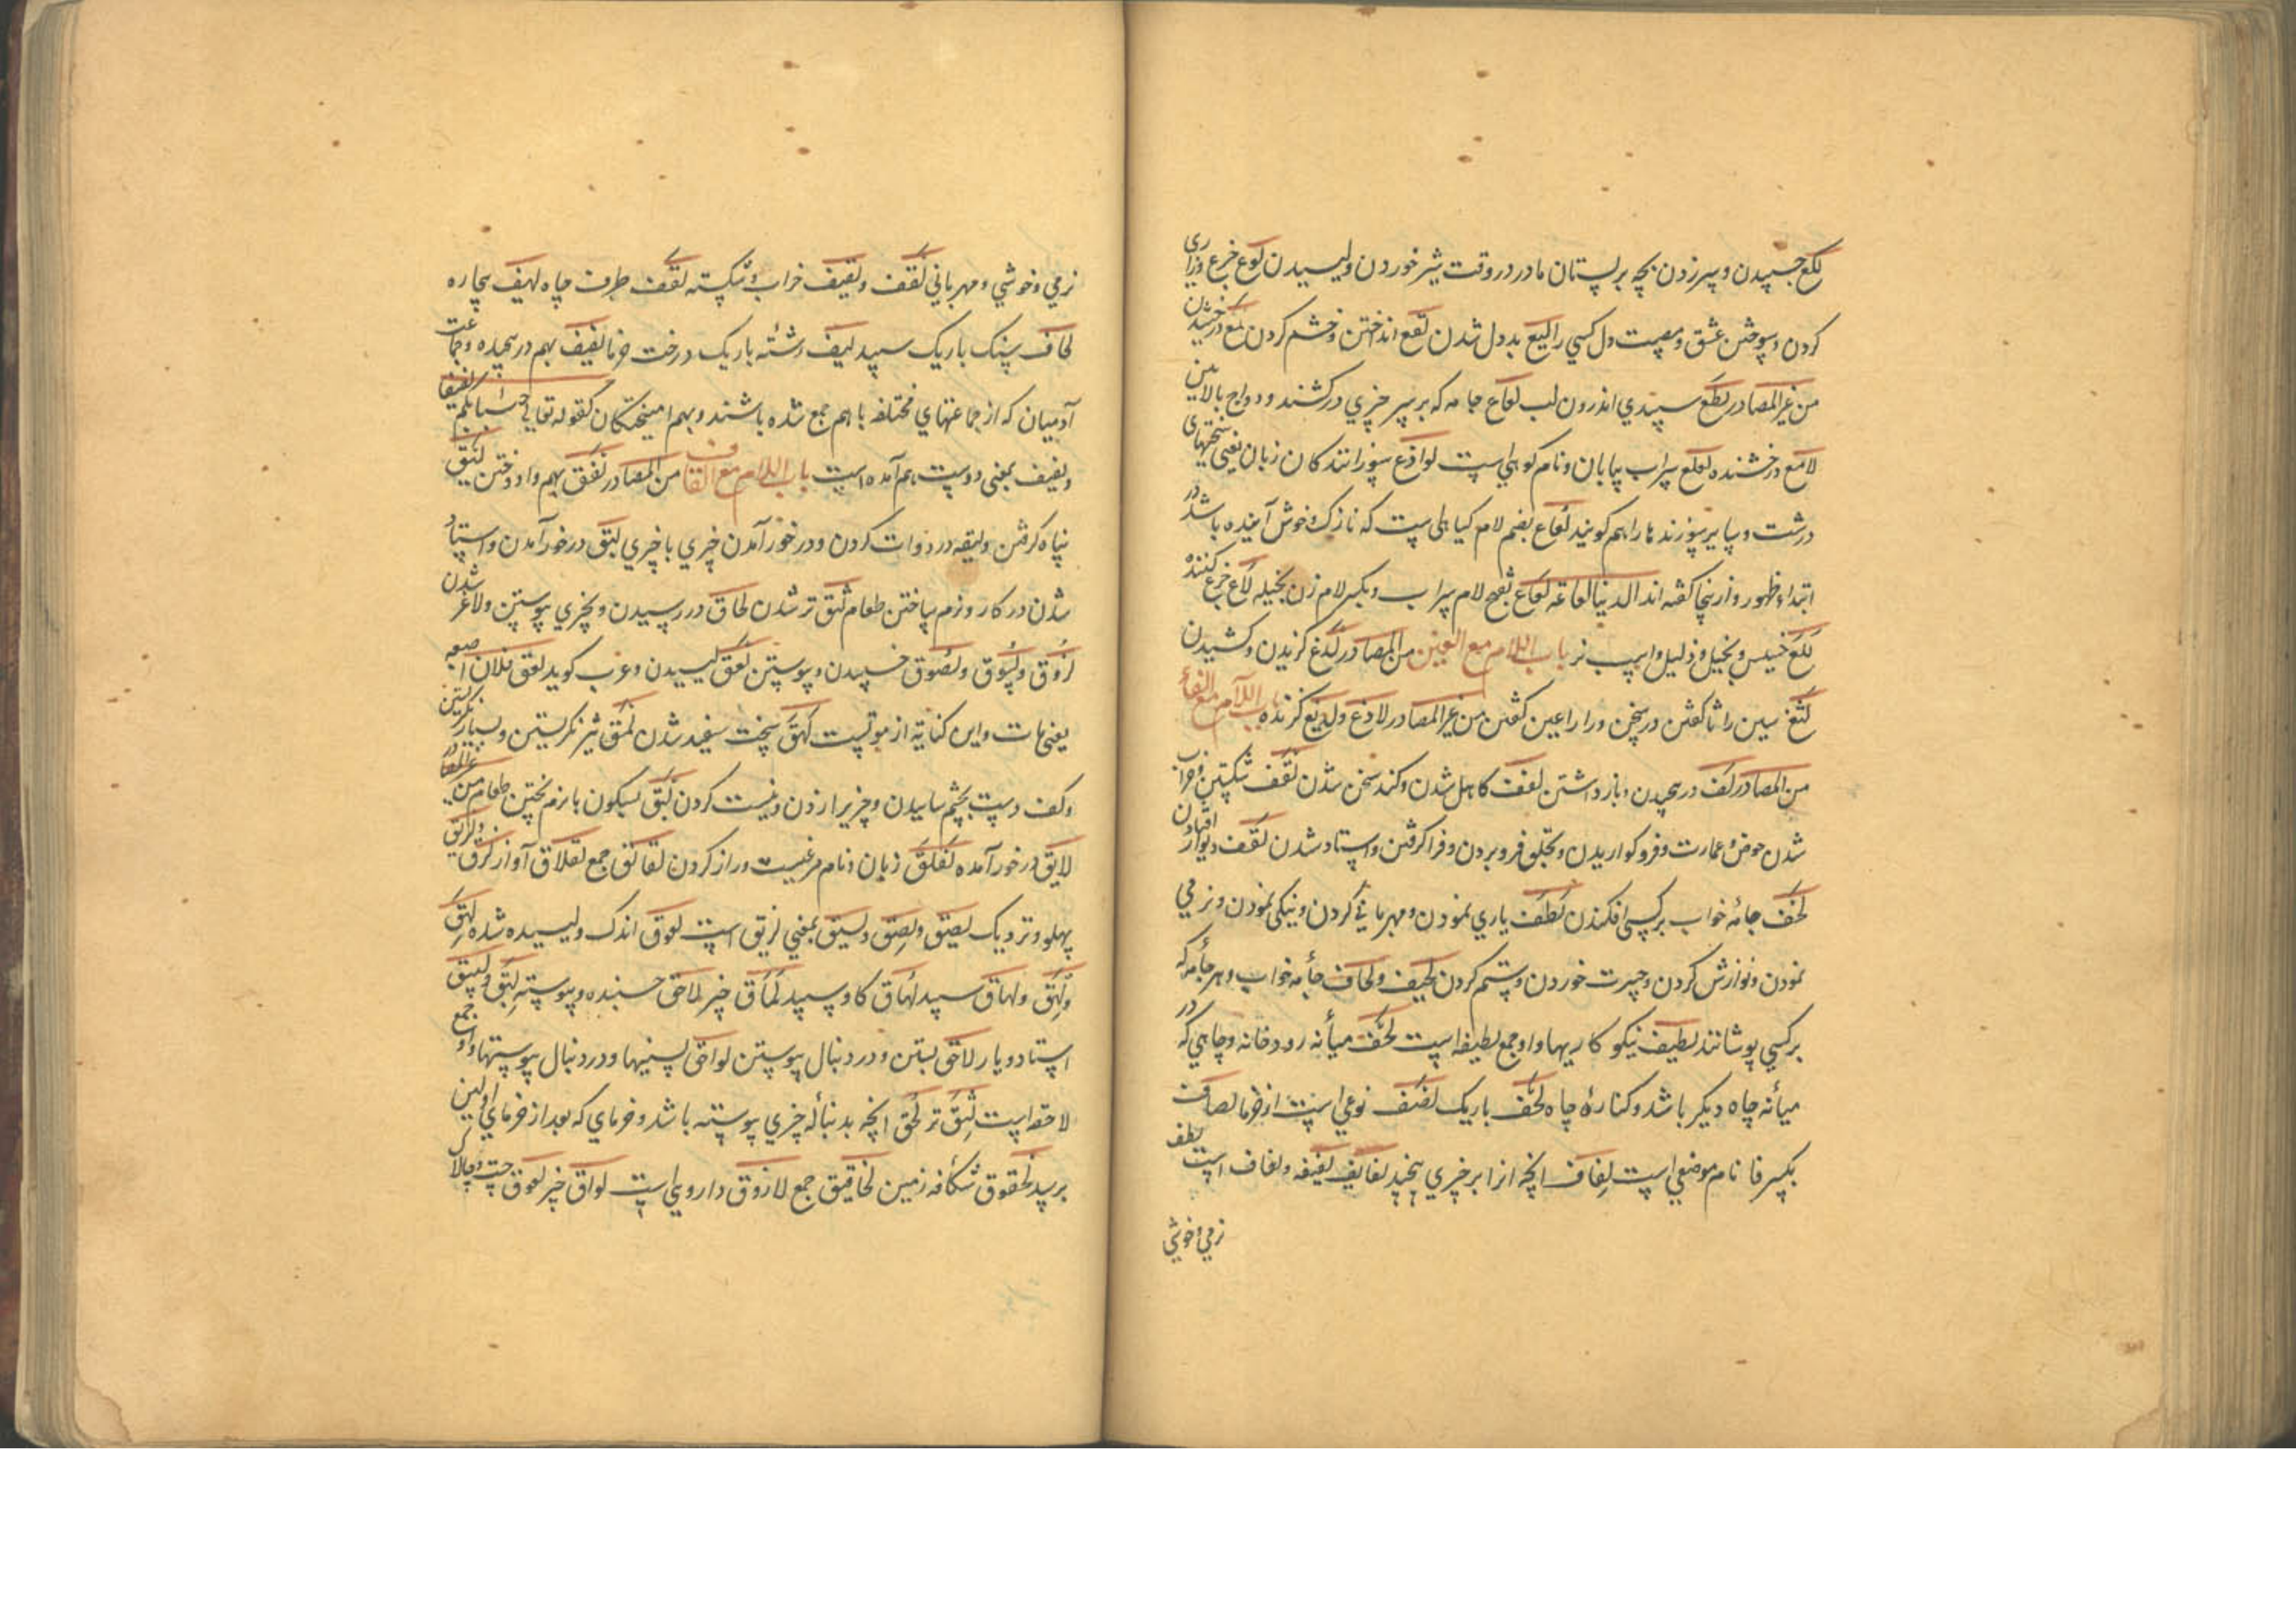 لکع چسپیدن و سر زدن بچه بر پستان مادر در وقت شیر خوردن و لیسیدن لوع جزع و زاری
کردن و سوختن عشق و مصیبت دل کسی را لیع بددل شدن لقع انداختن و چشم کردن لمع درخشیدن
من غیر المصادر لطع سپیدی اندرون لب لفاع جامه که بر سر چیزی درکشند و دواج بالایین
لامع درخشنده لعلع سراب بیابان و نام کوهی است لواذع سوزانندکان زبان یعنی سختهای
درشت و سایر سوزندها را هم کویند لعاع بضم لام کیاهی است که نازک و خوش آینده باشد در
ابتداء ظهور و ازینجا کفته اند الدنیا لعاعة لعاع بفتح لام سراب و بکسر لام زن بخیله لاع جزع کننده
لکع خسیس و بخیل و ذلیل و اسپ نر باب اللام مع الغین من المصادر لدغ کزیدن و کشیدن
لثغ سین را ثا کفتن در سخن و را را غین کفتن من غیر المصادر لادغ و لدیغ کزنده باب اللام مع الفاء
من المصادر لف در پیچیدن و باز داشتن لفف کاهل شدن و کند سخن شدن لقف شکستن و خراب
شدن حوض و عمارت و فرو کواریدن و بحلق فرو بردن و فرا کرفتن و استاد شدن لقف دیوار افتادن
لحف جامه خواب بر کسی افکندن لطف یاری نمودن و مهربانی کردن و نیکی نمودن و نرمی
نمودن و نوازش کردن و حسرت خوردن و ستم کردن لحیف و لحاف جامه خواب و هر جامه که
بر کسی پوشانند لطیف نیکو کاریها و او جمع لطیفه است لحف میانه رودخانه و چاهی که در
میانه چاه دیکر باشد و کناره چاه لحف باریک لصف نوعی است از خرما لصاف
بکسر فا نام موضعی است لفاف انچه انرا بر چیزی پیچند لفایف لفیفه و لفاف است لطف
نرمی و خوشی
نرمی و خوشی و مهربانی لقف و لقیف خراب و شکسته لقف طرف چاه لهیف بیچاره
لخاف سنک باریک سپید لیف رشته باریک درخت خرما لفیف بهم در پیچیده و جماعت
آدمیان که از جماعتهای مختلفه با هم جمع شده باشند و بهم امیختکان کقوله تعالی جئنا بکم لفیفا
و لفیف بمعنی دوست هم آمده است باب اللام مع القاف من المصادر لفق بهم وا دوختن لیق
پناه کرفتن و لیقه در دوات کردن و در خور آمدن چیزی با چیزی لبق در خور آمدن و استاد
شدن در کار و نرم ساختن طعام لثق تر شدن لحاق در رسیدن و بچیزی پیوستن و لاغر شدن
لزوق و لسوق و لصوق چسپیدن و پیوستن لعق لیسیدن و عرب کوید لعق فلان اصبعه
یعنی مات و این کنایة از موتست لهق سخت سفید شدن لمق تیز نکریستن و بسیار نکریستن
و کف دست بچشم ساییدن و چیزیرا زدن و نیست کردن لبق بسکون با نرم پختن طعام من غیر المصادر
لایق در خور آمده لقلق زبان و نام مرغیست دراز کردن لقالق جمع لقلاق آواز لزق و لزیق
پهلو و نزدیک لصیق و لصق و لسیق بمعنی لزیق است لعوق اندک و لیسیده شده لهق
و لهق و لهاق سپید لهاق کاو سپید لماق چیز لاحق چسبنده و پیوسته لبق و لبیق
استاد و یار لاحق بستن و در دنبال پیوستن لواحق پسینیها و در دنبال پیوستها و او جمع
لاحقه است لثق تر لحق انچه بدنباله چیزی پیوسته باشد و خرمای که بعد از خرمای اولین
برسد لخقوق شکافه زمین لخاقیق جمع لازوق دارویی است لواق چیز لعوق چست و چالاک